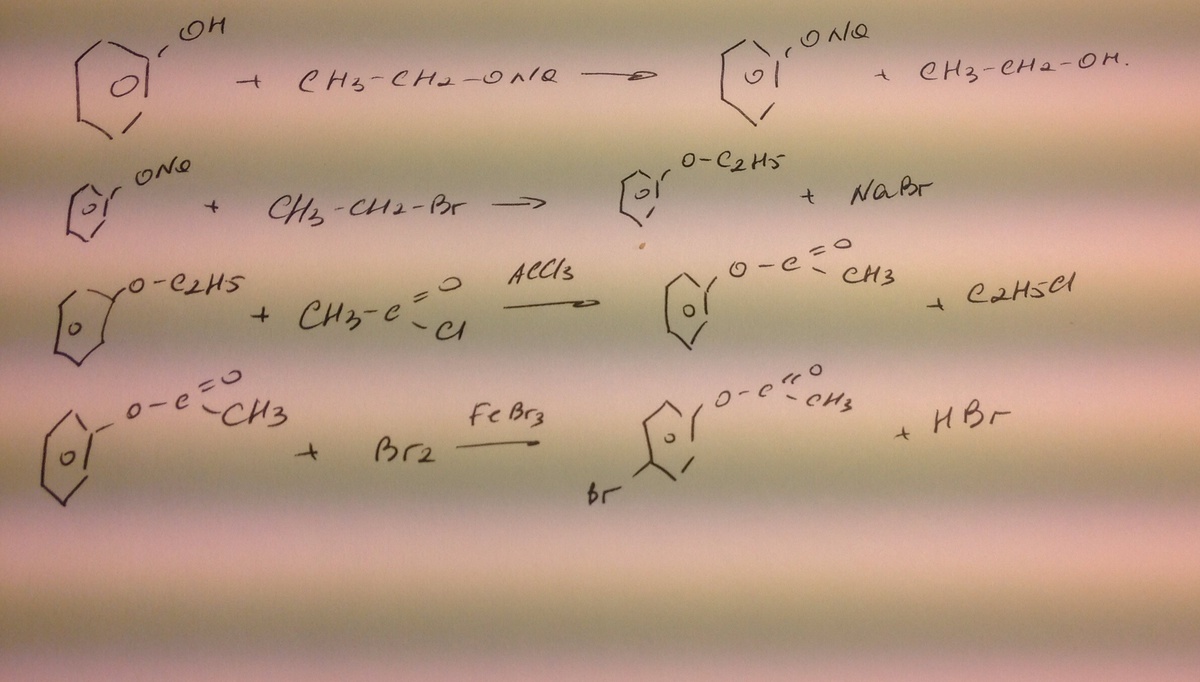 OH + CH3-CH2-ONa → ONa + CH3-CH2-OH.
ONa + CH3-CH2-Br → O-C2H5 + NaBr
O-C2H5 + CH3-C=O-Cl AlCl3 → O-C=O-CH3 + C2H5Cl
O-C=O-CH3 + Br2 FeBr3 → Br O-C=O-CH3 + HBr